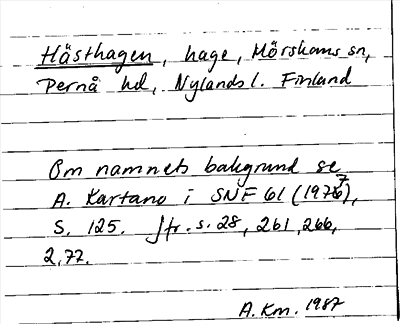 Hästhagen, hage, Mörskoms sn,
Pernå hd, Nylands l. Finland
Om namnets bakgrund se
A. Kartano i SNF 61 (1977),
S. 125. Jfr. s. 28, 261, 266,
272.
A. Km. 1987